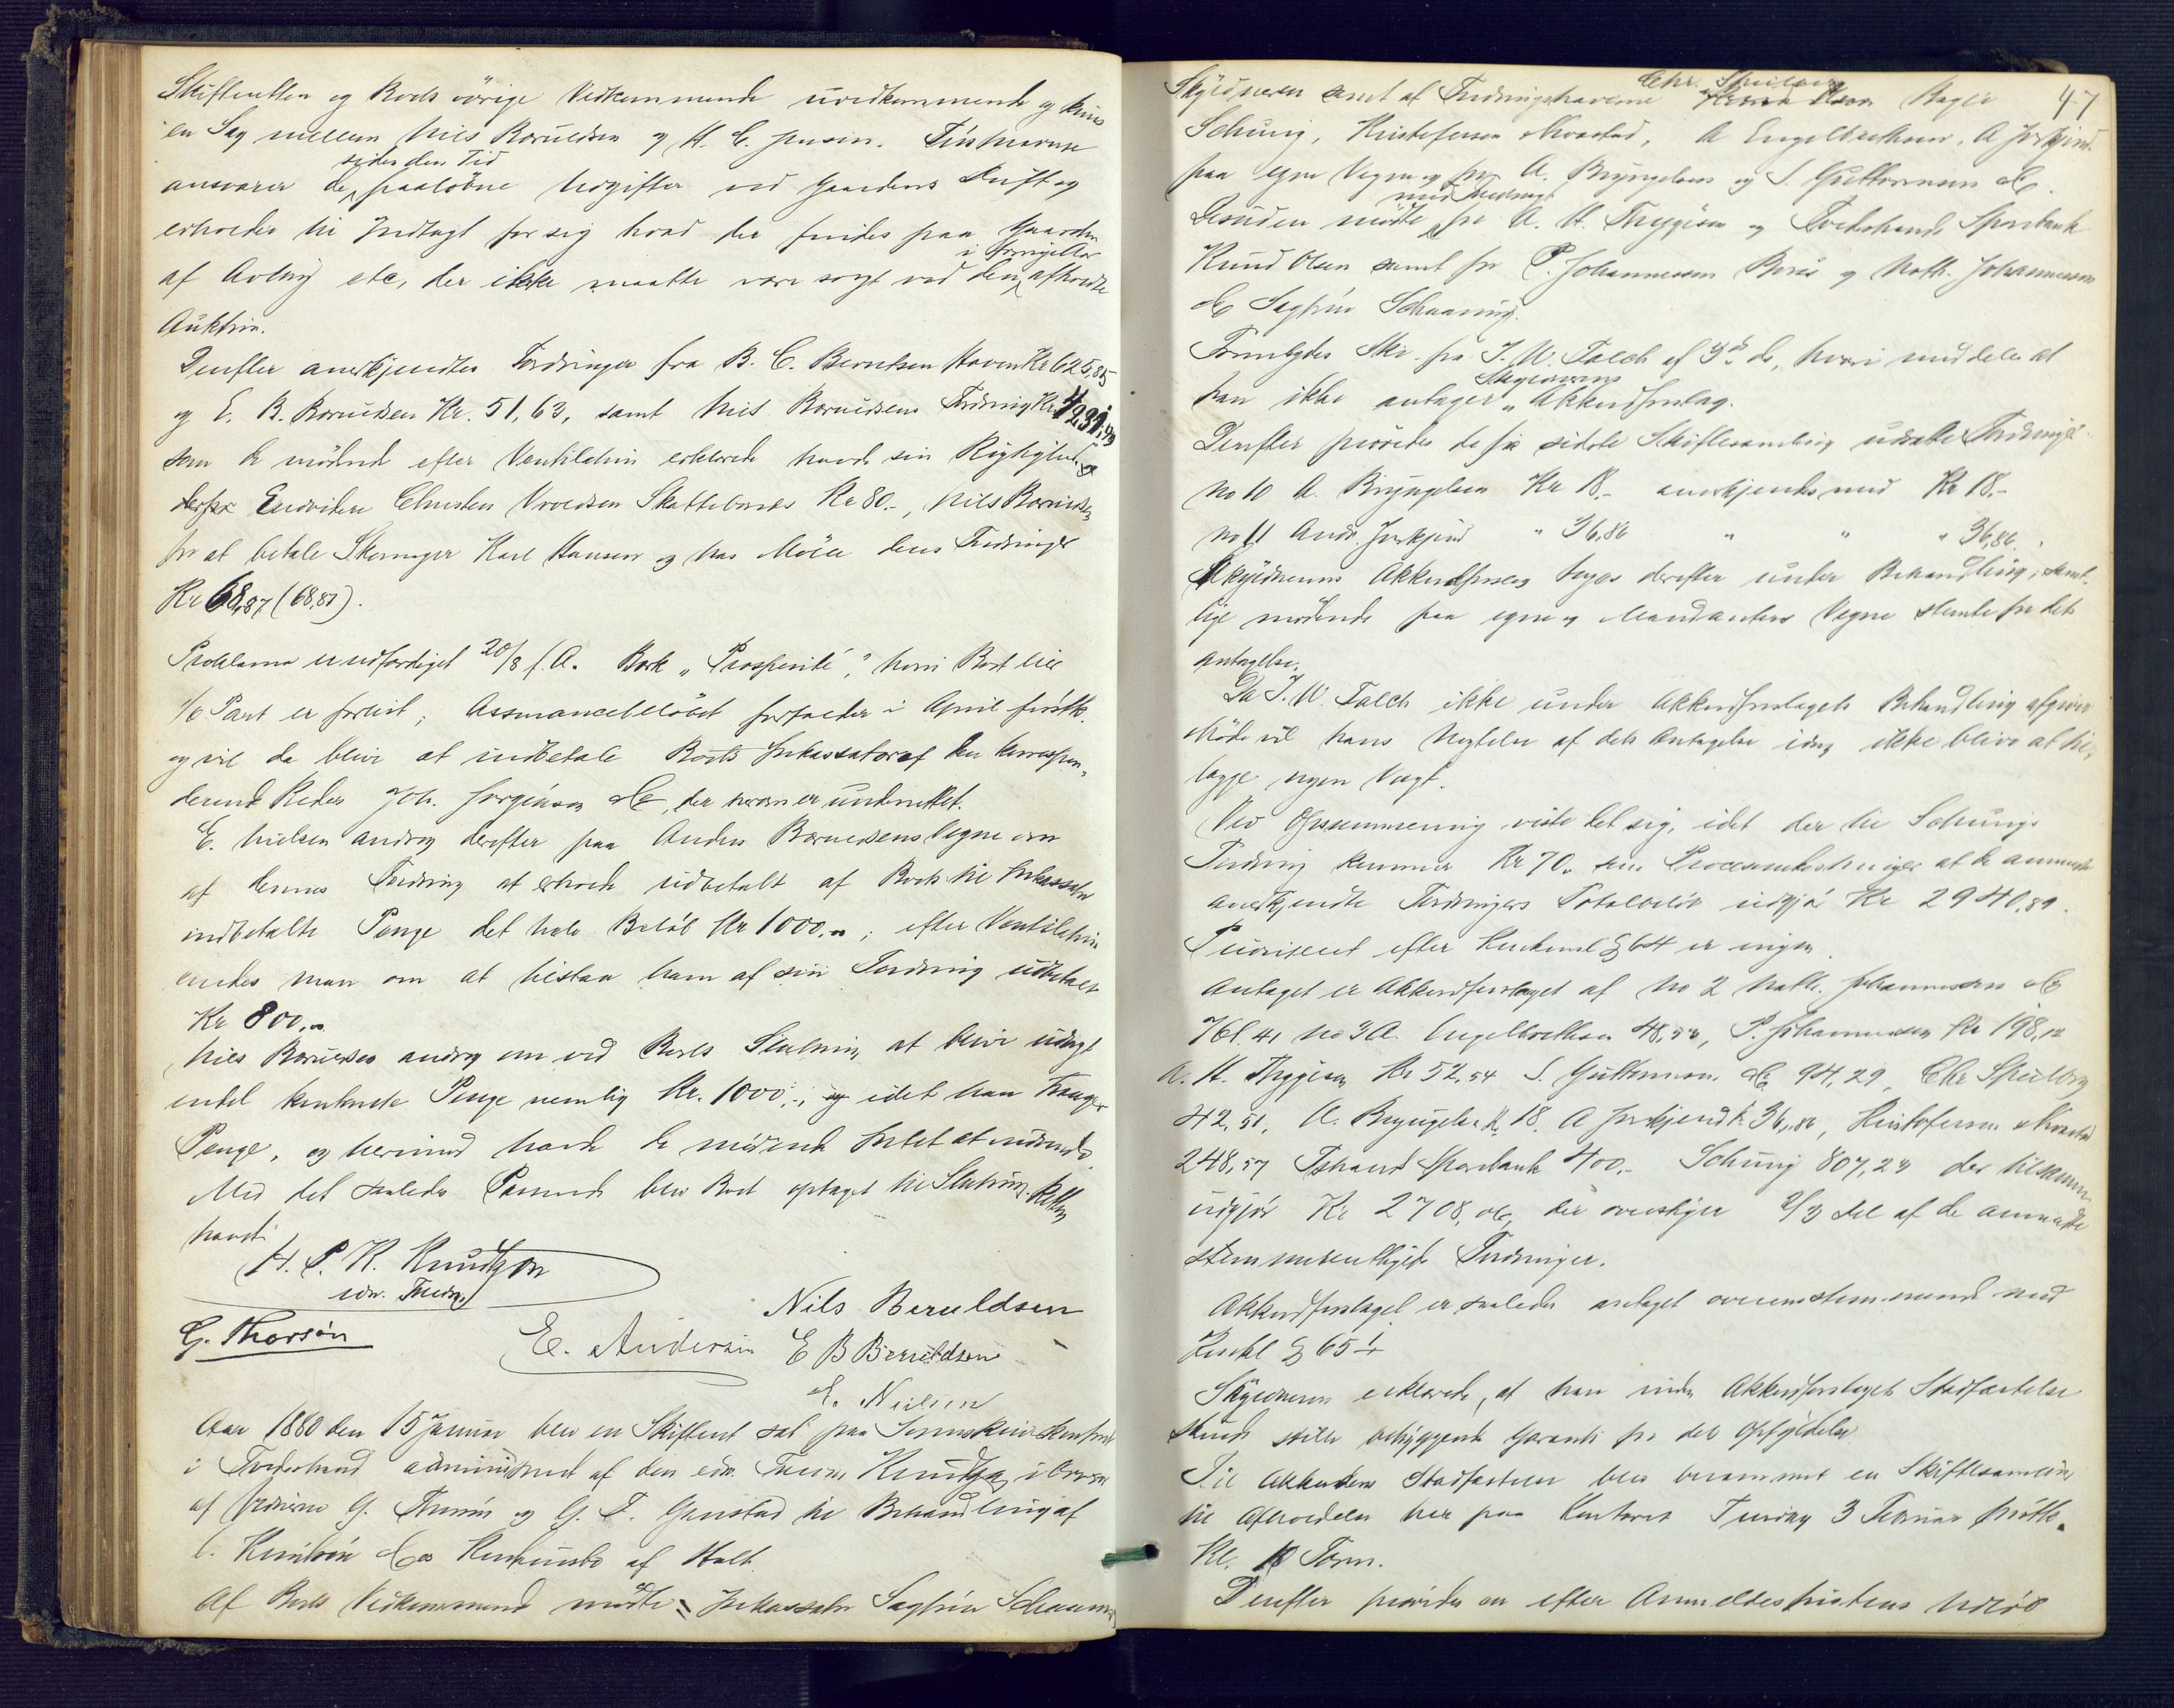 Skifteretten og Boets øvrige Vedkommende uvedkommende og kun
en Sag mellem Nils Beruldsen og H. C. Jensen.
siden den Tid
ansvarer de paaløbne Udgifter ved Gaardens Drift og
erholder til Indtægt for sig hvad der findes paa Gaarden
i forrige Uge
af Avling etc, der ikke maatte være solgt ved den afholdte
Auktion.
Derefter anerkjendtes Fordringer fra B. C. Berntsen Haven Kr 625,85
og E. B. Beruldsen Kr. 51,63, samt Nils Beruldsens Fordring Kr
som de mødende efter Ventilation erklærede havde sin Rigtighed
Endvidere Christen Skattebøroes Kr 80.-, Nils Beruldsen
for at betale Skomager Karl Hansen og hos deres Fordringer
Kr 68,87 (68,87).
Proklama er udfærdiget 20/8 f. A. Bark „Prosperité", hvori Boet eier
1/6 Part er forlist; Assurancebeløbet forfalder i April førstk.
og vil da blive at indbetale Boets Inkassator af den korrespon-
derende Reder Joh. Jørgensen & Co, der herom er underrettet.
E. Nielsen androg derefter paa Anders Beruldsens Vegne om
af dennes Fordring at erholde udbetalt af Boets til Inkassator
indbetalte Penge det hele Beløb Kr 1000.-; efter Ventilation
enedes man om at tilstaa ham af sin Fordring udbetalt
Kr 800.-
Nils Beruldsen androg om ved Boets Slutning at blive udlagt
endel kontante Penge nemlig Kr. 1000.-, idet han trænger
Penge, og herimod havde de mødende Intet at indvende.
Med det saaledes Passerede blev Boet optaget til Slutning. Retten
hævet.
H. P. K. Knudtzon
edv. Fuldm.
G. Thorsön
Nils Beruldsen
E. Andersen
E B Beruldsen
E. Nielsen
Aar 1880 den 15 Januar blev en Skifteret sat paa Sorenskriverkontoret
i Tvedestrand administreret af den edv. Fuldm. Knudtzon i Overvær
af Vidnerne G. Thorsön og G. T. Grenstad til Behandling af
C. Knudsön & Cos Konkursbo af Holt.
Af Boets Vedkommende mødte Inkassator Sagfører Schaaning
47
Chr. Speilberg
Skyldneren samt af Fordringshaverne Bager
Schung, Kristofersen A Engelbrethsen, A Jorkjend
paa egne Vegne og for A. Bryngelsen og S. Guttormsen & Co.
med Fuldmagt
Desuden mødte for A. H. Thygesen og Tvedestrands Sparebank
Knud Olsen samt for P. Johannesen Borøs og Nath. Johannesen
& Co Sagfører Schaaning.
Fremlagdes Skr. fra J. W. Falch af 3die ds, hvori meddeles at
Skyldnerens
han ikke antager Akkordforslag.
Derefter prøvedes de fra sidste Skiftesamling udsatte Fordringer
No 10 A. Bryngelsen Kr 18.- anerkjendes med Kr 18.-
No 11 Andr. Jorkjend „ 36,86 „ „ „ 36,86.
Skyldnerens Akkordforslag toges derefter under Behandling; samt-
lige mødende paa egne og Mandanters Vegne stemte for dets
Antagelse.
Da J. W. Falch ikke under Akkordforslagets Behandling afgiver
Møde vil hans Nægtelse af dets Antagelse idag ikke blive at til-
lægge nogen Vægt.
Ved Opsummering viste det sig, idet der til Schungs
Fordring kommer Kr 70.- som Procesomkostninger at de anmeldte
anerkjendte Fordringers Totalbeløb udgjør Kr 2940,89.
Prioriteret efter Konkursl § 64 er ingen.
Antaget er Akkordforslaget af No 2 Nath. Johannesen & Co
761.41 No 3 A. Engelbrethsen 48,50, P. Johannesen Kr 198,12
A. H. Thygesen Kr 52,54 S. Guttormsen & Co 94,29, Chr Speilberg
42,51, A. Bryngelsen Kr 18, A Jorkjend Kr 36,86, Kristofersen
248,57 Tstrand Sparebank 400.- Schung 807,23 der tilsammen
udgjør Kr 2708,06, der overstiger 2/3 del af de anmeldte
stemmeberettigede Fordringer.
Akkordforslaget er saaledes antaget overensstemmende med
Konkl § 65 1
Skyldneren erklærede, at han inden Akkordforslagets Stadfæstelse
skulde stille betryggende Garanti for dets Opfyldelse.
Til Akkordens Stadfæstelse blev berammet en Skiftesamling
til Afholdelse her paa Kontoret Tirsdag 3 Februar førstk.
Kl. 10 Form.
Derefter prøvedes en efter Anmeldelsesfristens Udløb